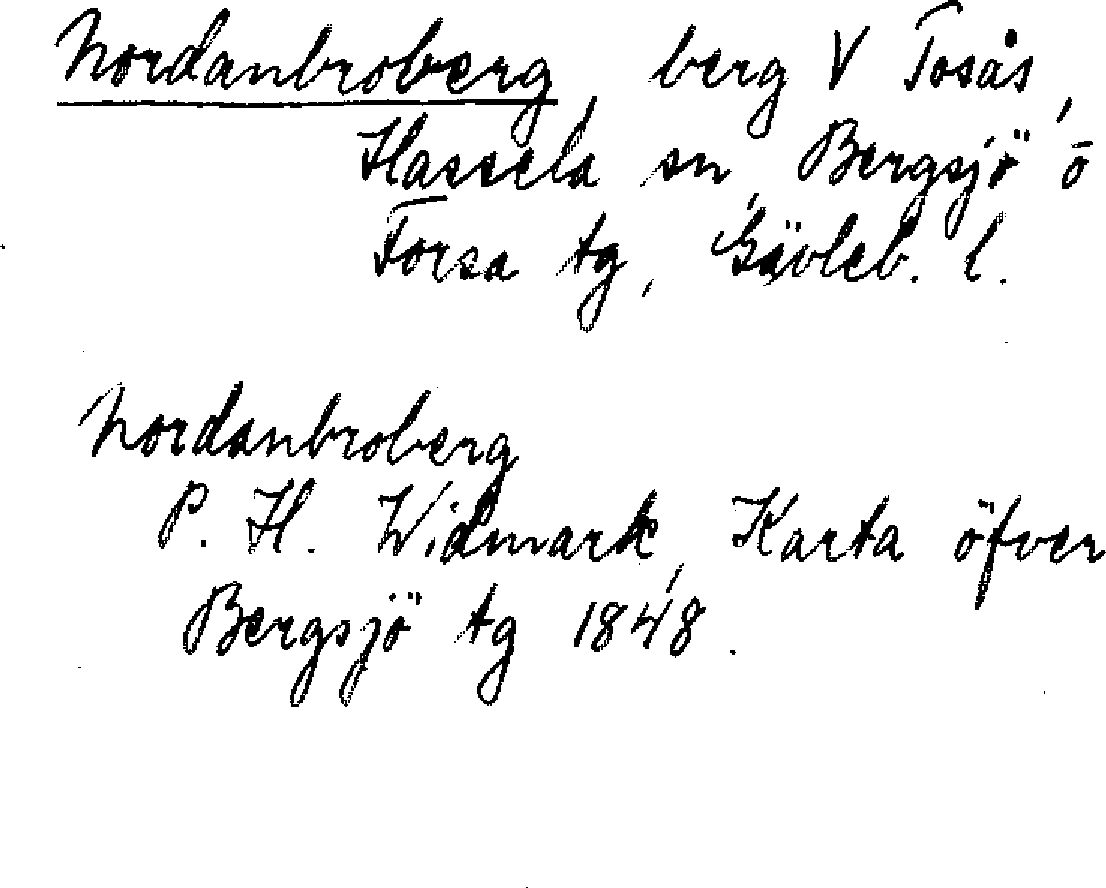 Nordanbroberg, berg V Tosås,
Hassela sn, Bergsjö o
Forsa tg, Gävleb. l.
Nordanbroberg
P. H. Widmark, Karta öfver
Bergsjö tg 1848.